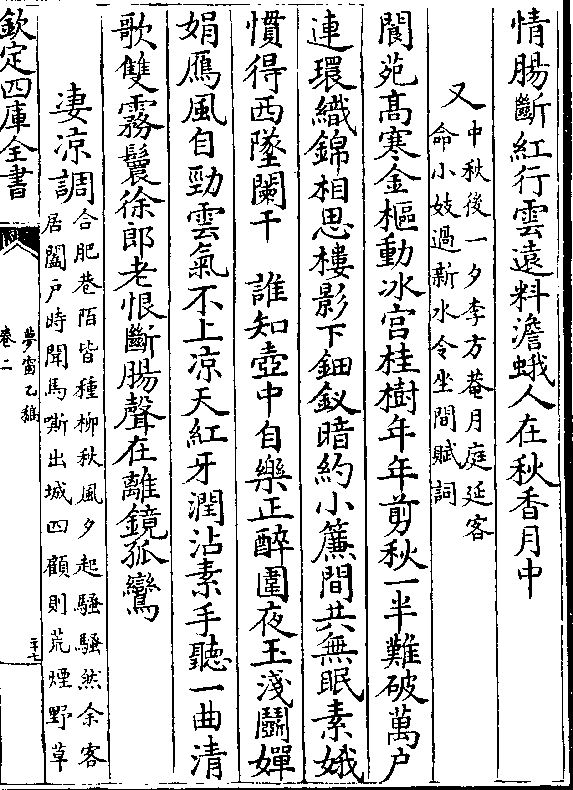 情腸斷紅行雲遠料澹蛾人在秋香月中
又
中秋後一夕李方菴月庭延客
命小妓過新水令坐間賦詞
閬苑高寒金樞動冰宮桂樹年年剪秋一半難破萬户
連環織錦相思樓影下鈿釵暗約小簾間共無眠素娥
慣得西墜闌干　誰知壺中自樂正醉圍夜玉淺鬬嬋
娟鴈風自勁雲氣不上凉天紅牙潤沾素手聽一曲清
歌雙霧鬟徐郎老恨斷腸聲在離鏡孤鸞
凄凉調
合肥巷陌皆種柳秋風夕起騷騷然余客
居闔户時聞馬嘶出城四顧則荒煙野草
欽定四庫全書
夢窗乙稿
卷二